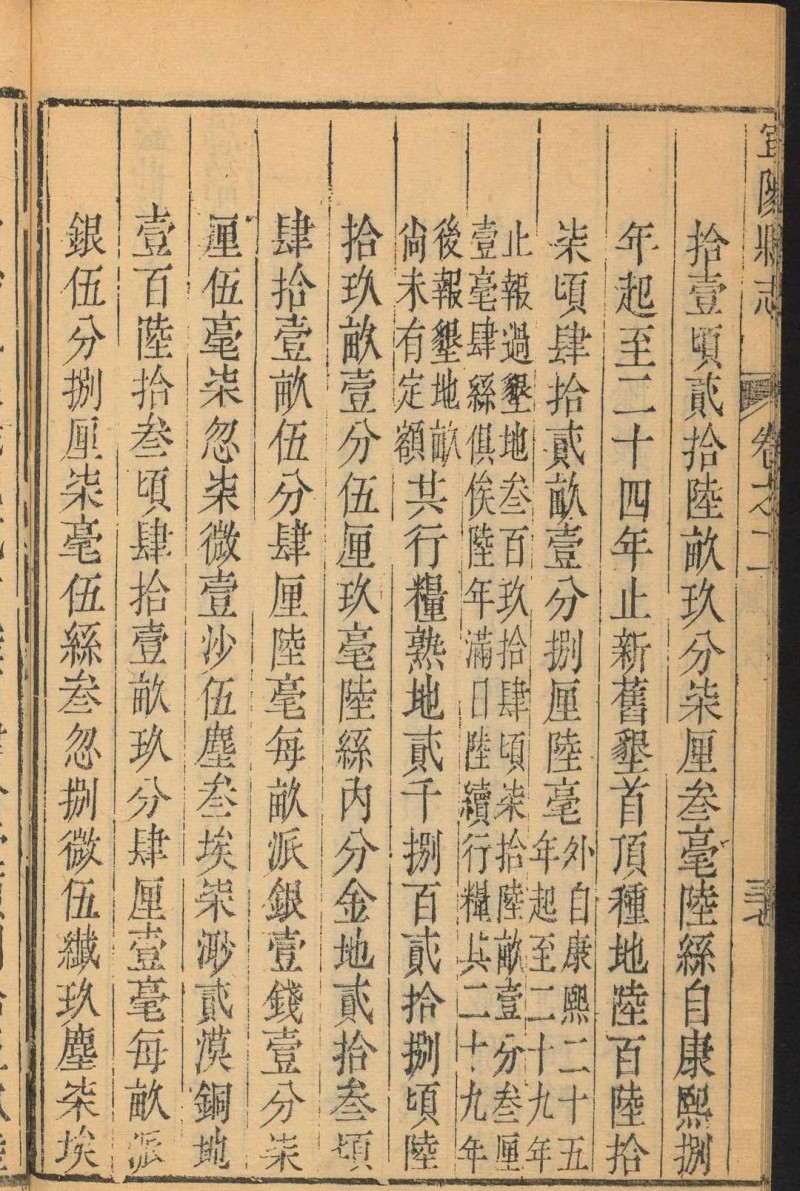 宜陽縣志 卷之二
拾壹頃貳拾陸畝玖分柒厘叁毫陸絲自康熙捌
年起至二十四年止新舊墾首頂種地陸百陸拾
柒頃肆拾貳畝壹分捌厘陸毫
外自康熙二十五
年起至二十九年
止報過墾地叁百玖拾肆頃柒拾陸畝壹分叁厘
壹毫肆絲俱俟陸年滿日陸續行糧其二十九年
後報墾地畝
尚未有定額
共行糧熟地貳千捌百貳拾捌頃陸
拾玖畝壹分伍厘玖毫陸絲內分金地貳拾叁頃
肆拾壹畝伍分肆厘陸毫每畝派銀壹錢壹分柒
厘伍毫柒忽柒微壹沙伍塵叁埃柒渺貳漠銅地
壹百陸拾叁頃肆拾壹畝玖分肆厘壹毫每畝派
銀伍分捌厘柒毫伍絲叁忽捌微伍纖玖塵柒埃